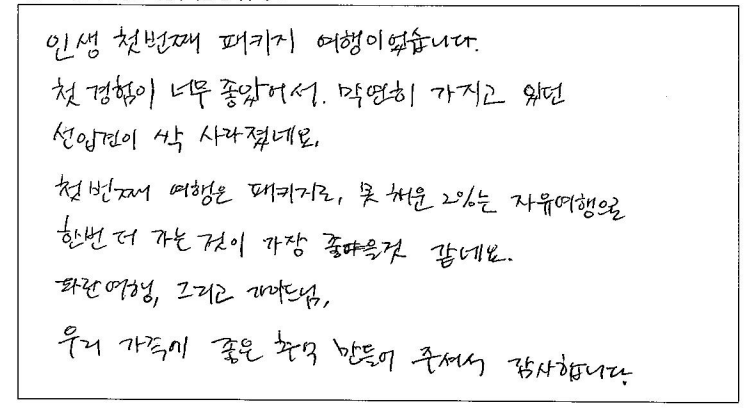 인생 첫번째 패키지 여행이었습니다.
첫 경험이 너무 좋았어서. 막연히 가지고 있던
선입견이 싹 사라졌네요.
첫 번째 여행은 패키지로, 못 채운 2%는 자유여행으로
한번 더 가는 것이 가장 좋을것 같네요.
파란여행, 그리고 가이드님,
우리 가족에 좋은 추억 만들어 주셔서 감사합니다.